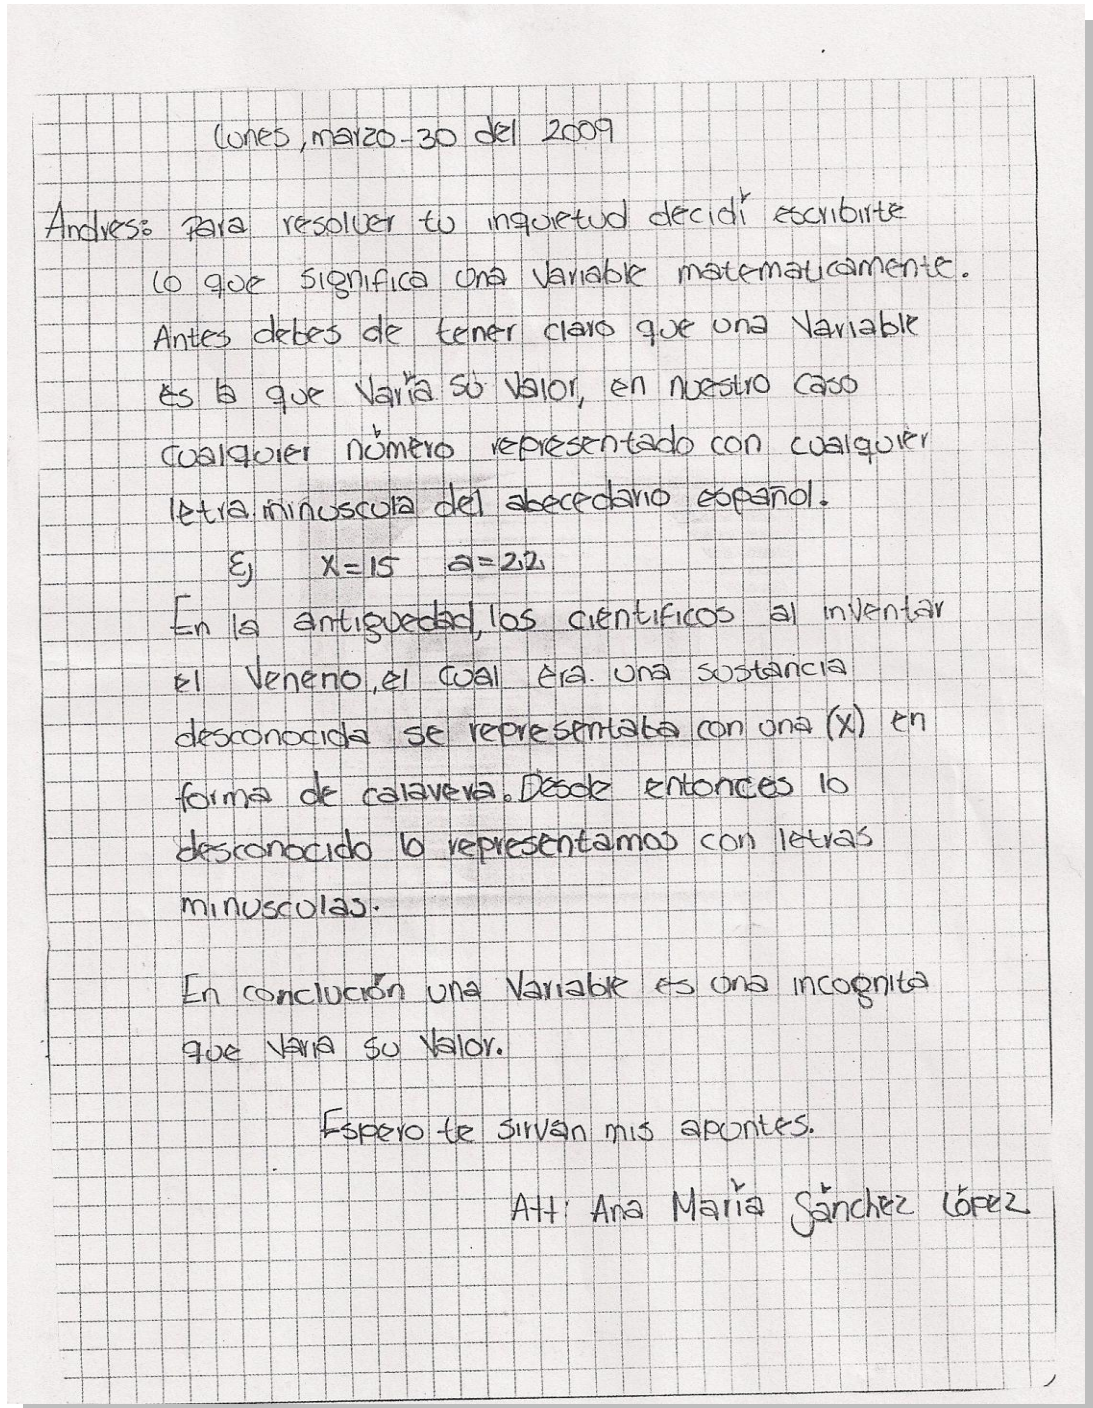 lunes, marzo-30 del 2009
Andres: Para resolver tu inquietud decidí escribirte
lo que significa una variable matematicamente.
Antes debes de tener claro que una Variable
es la que Varía su Valor, en nuestro caso
cualquier número representado con cualquier
letra minuscula del abecedario español.
Ej x=15 a=2,2
En la antiguedad, los cientificos al inventar
el Veneno, el cual era una sustancia
desconocida se representaba con una (x) en
forma de calavera. Desde entonces lo
desconocido lo representamos con letras
minusculas.
En conclución una Variable es una incognita
que varia su Valor.
Espero te sirvan mis apuntes.
Att: Ana María Sánchez López